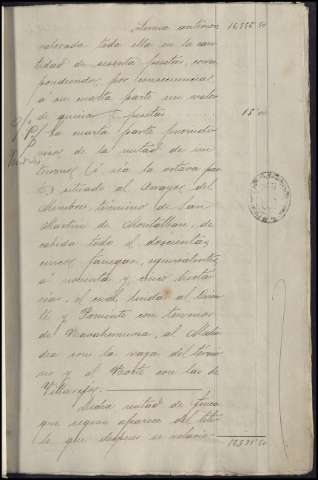 Suma anterior 16,555.50
valorada toda ella en la can-
tidad de sesenta pesetas, corres
pondiendo por consecuencia
a su cuarta parte un valor
de quince pesetas 15 "
La cuarta parte proindi-
visa de la mitad de un
terreno (ó sea la octava par
te) situado al Arroyo del
Membre, término de San
Martin de Montalban, de
cabida todo él doscientas
cinco fanegas, equivalentes
á noventa y cinco hectá-
reas, el cual linda al Levan
te y Poniente con terrenos
de, al Medio
dia con la raya del térmi-
no y al Norte con las de
Villarejo.
Media mitad de finca
que segun aparece del títu-
lo que despues se relacio-